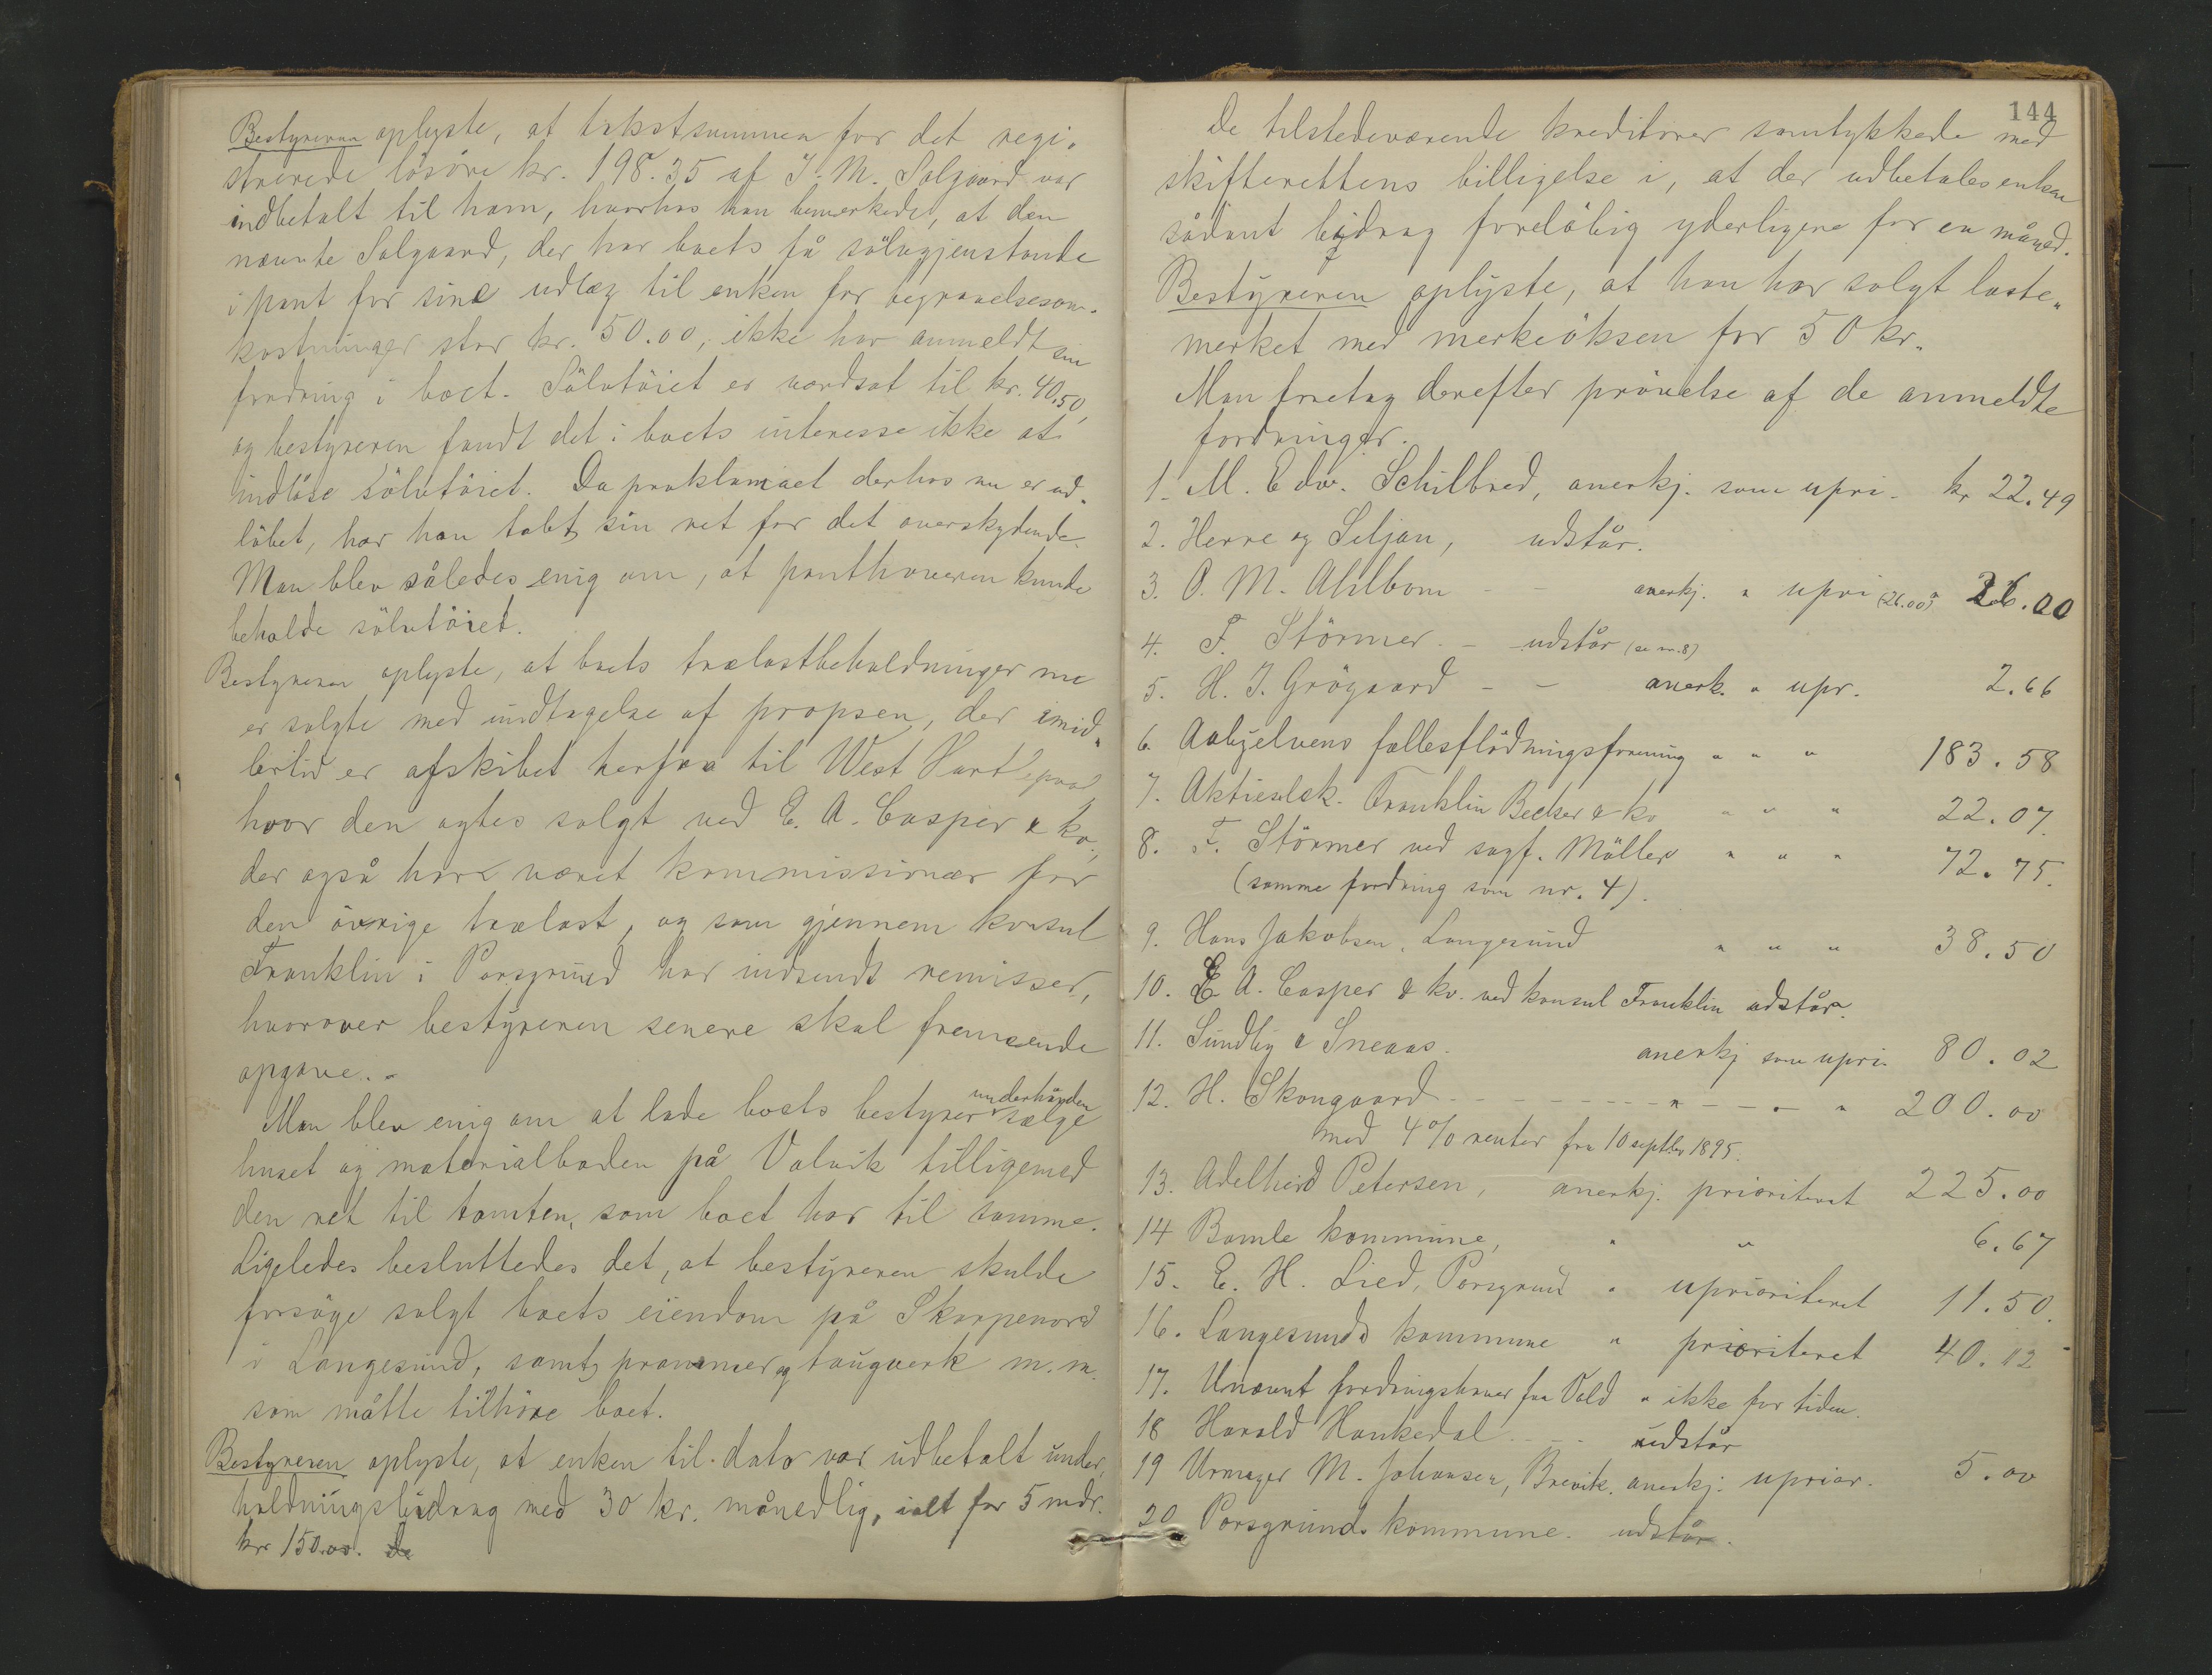 Bestyreren oplyste, at takstsummen for det regi-
strerede lösöre kr. 198.35 af J. M. Salgaard var
indbetalt til ham, hvorhos han bemerkede, at den
nævnte Salgaard, der har boets få sölvgjenstande
i pant for sine udlæg til enken for begravelsesom-
kostninger stor kr. 50.00, ikke har anmeldt sin
fordring i boet. Sölvtöiet er værdsat til kr. 40.50,
og bestyreren fandt det i boets interesse ikke at
indlöse sölvtöiet. Da proklamaet derhos nu er ud-
löbet, har han tabt sin ret for det overskydende.
Man blev således enig om, at panthaveren kunde
beholde sölvtöiet.
Bestyreren oplyste, at boets trælastbeholdninger nu
er solgte med undtagelse af propsen, der imid-
lertid er afskibet herfra til West Hartlepool,
hvor den agtes solgt ved E. A. Casper & ko.,
der også har været kommissionær for
den övrige trælast, og som gjennem konsul
Franklin i Porsgrund har indsendt remisser,
hvorover bestyreren senere skal fremsende
opgave. -
Man blev enig om at lade boets bestyrer underhånden sælge
huset og materialboden på Valvik tilligemed
den ret til tomten, som boet har til samme.
Ligeledes besluttedes det, at bestyreren skulde
forsöge solgt boets eiendom på Skarpenord
i Langesund, samt prammer og taugverk m. m.
som måtte tilhöre boet.
Bestyreren oplyste, at enken til dato var udbetalt under-
holdningsbidrag med 30 kr. månedlig, ialt for 5 mdr.
kr 150.00. De
144
De tilstedeværende kreditorer samtykkede med
skifterettens billigelse i, at der udbetales enken
sådant bidrag foreløbig yderligere for en måned.
Bestyreren oplyste, at han har solgt laste-
merket med merkeöksen for 50 kr.
Man foretog derefter prövelse af de anmeldte
fordringer.
1. M. Edv. Schilbred, anerkj. som upri. kr 22.49
2. Herre og Siljan, udstår.
3. O. M. Ahlbom - - anerkj. " upri (26.00) 26.00
4. F. Störmer - - udstår (se nr. 8)
5. H. J. Grögaard - - anerk. " upr. 2.66
6. Aabyelvens fællesflödningsforening " " " 183.58
7. Aktieselsk. Franklin Becker & ko " " " 22.07
8. F. Störmer ved sagf. Möller " " " 72.75.
(samme fordring som nr. 4).
9. Hans Jakobsen, Langesund " " " 38.50
10. E A. Casper & ko. ved konsul Franklin udstår.
11. Sundby & Sneaas. anerkj som upri. 80.02
12. H. Skougaard - - - " - " - " 200.00
med 4% renter fra 10 septbr 1895.
13. Adelheid Petersen, anerkj. prioriteret 225.00
14 Bamle kommune, " " 6.67
15. E. H. Lied, Porsgrund " uprioriteret 11.50.
16. Langesunds kommune " prioriteret 40.12
17. Unævnt fordringshaver fra Vold " ikke for tiden.
18 Harald Hankedal - - udstår
19 Urmager M. Johansen, Brevik. anerkj: uprior. 5.00
20 Porsgrunds kommune. udstår.